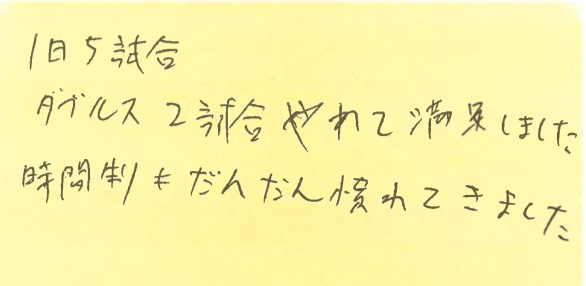 1日5試合
ダブルス2試合やれて満足しました
時間制もだんだん慣れてきました